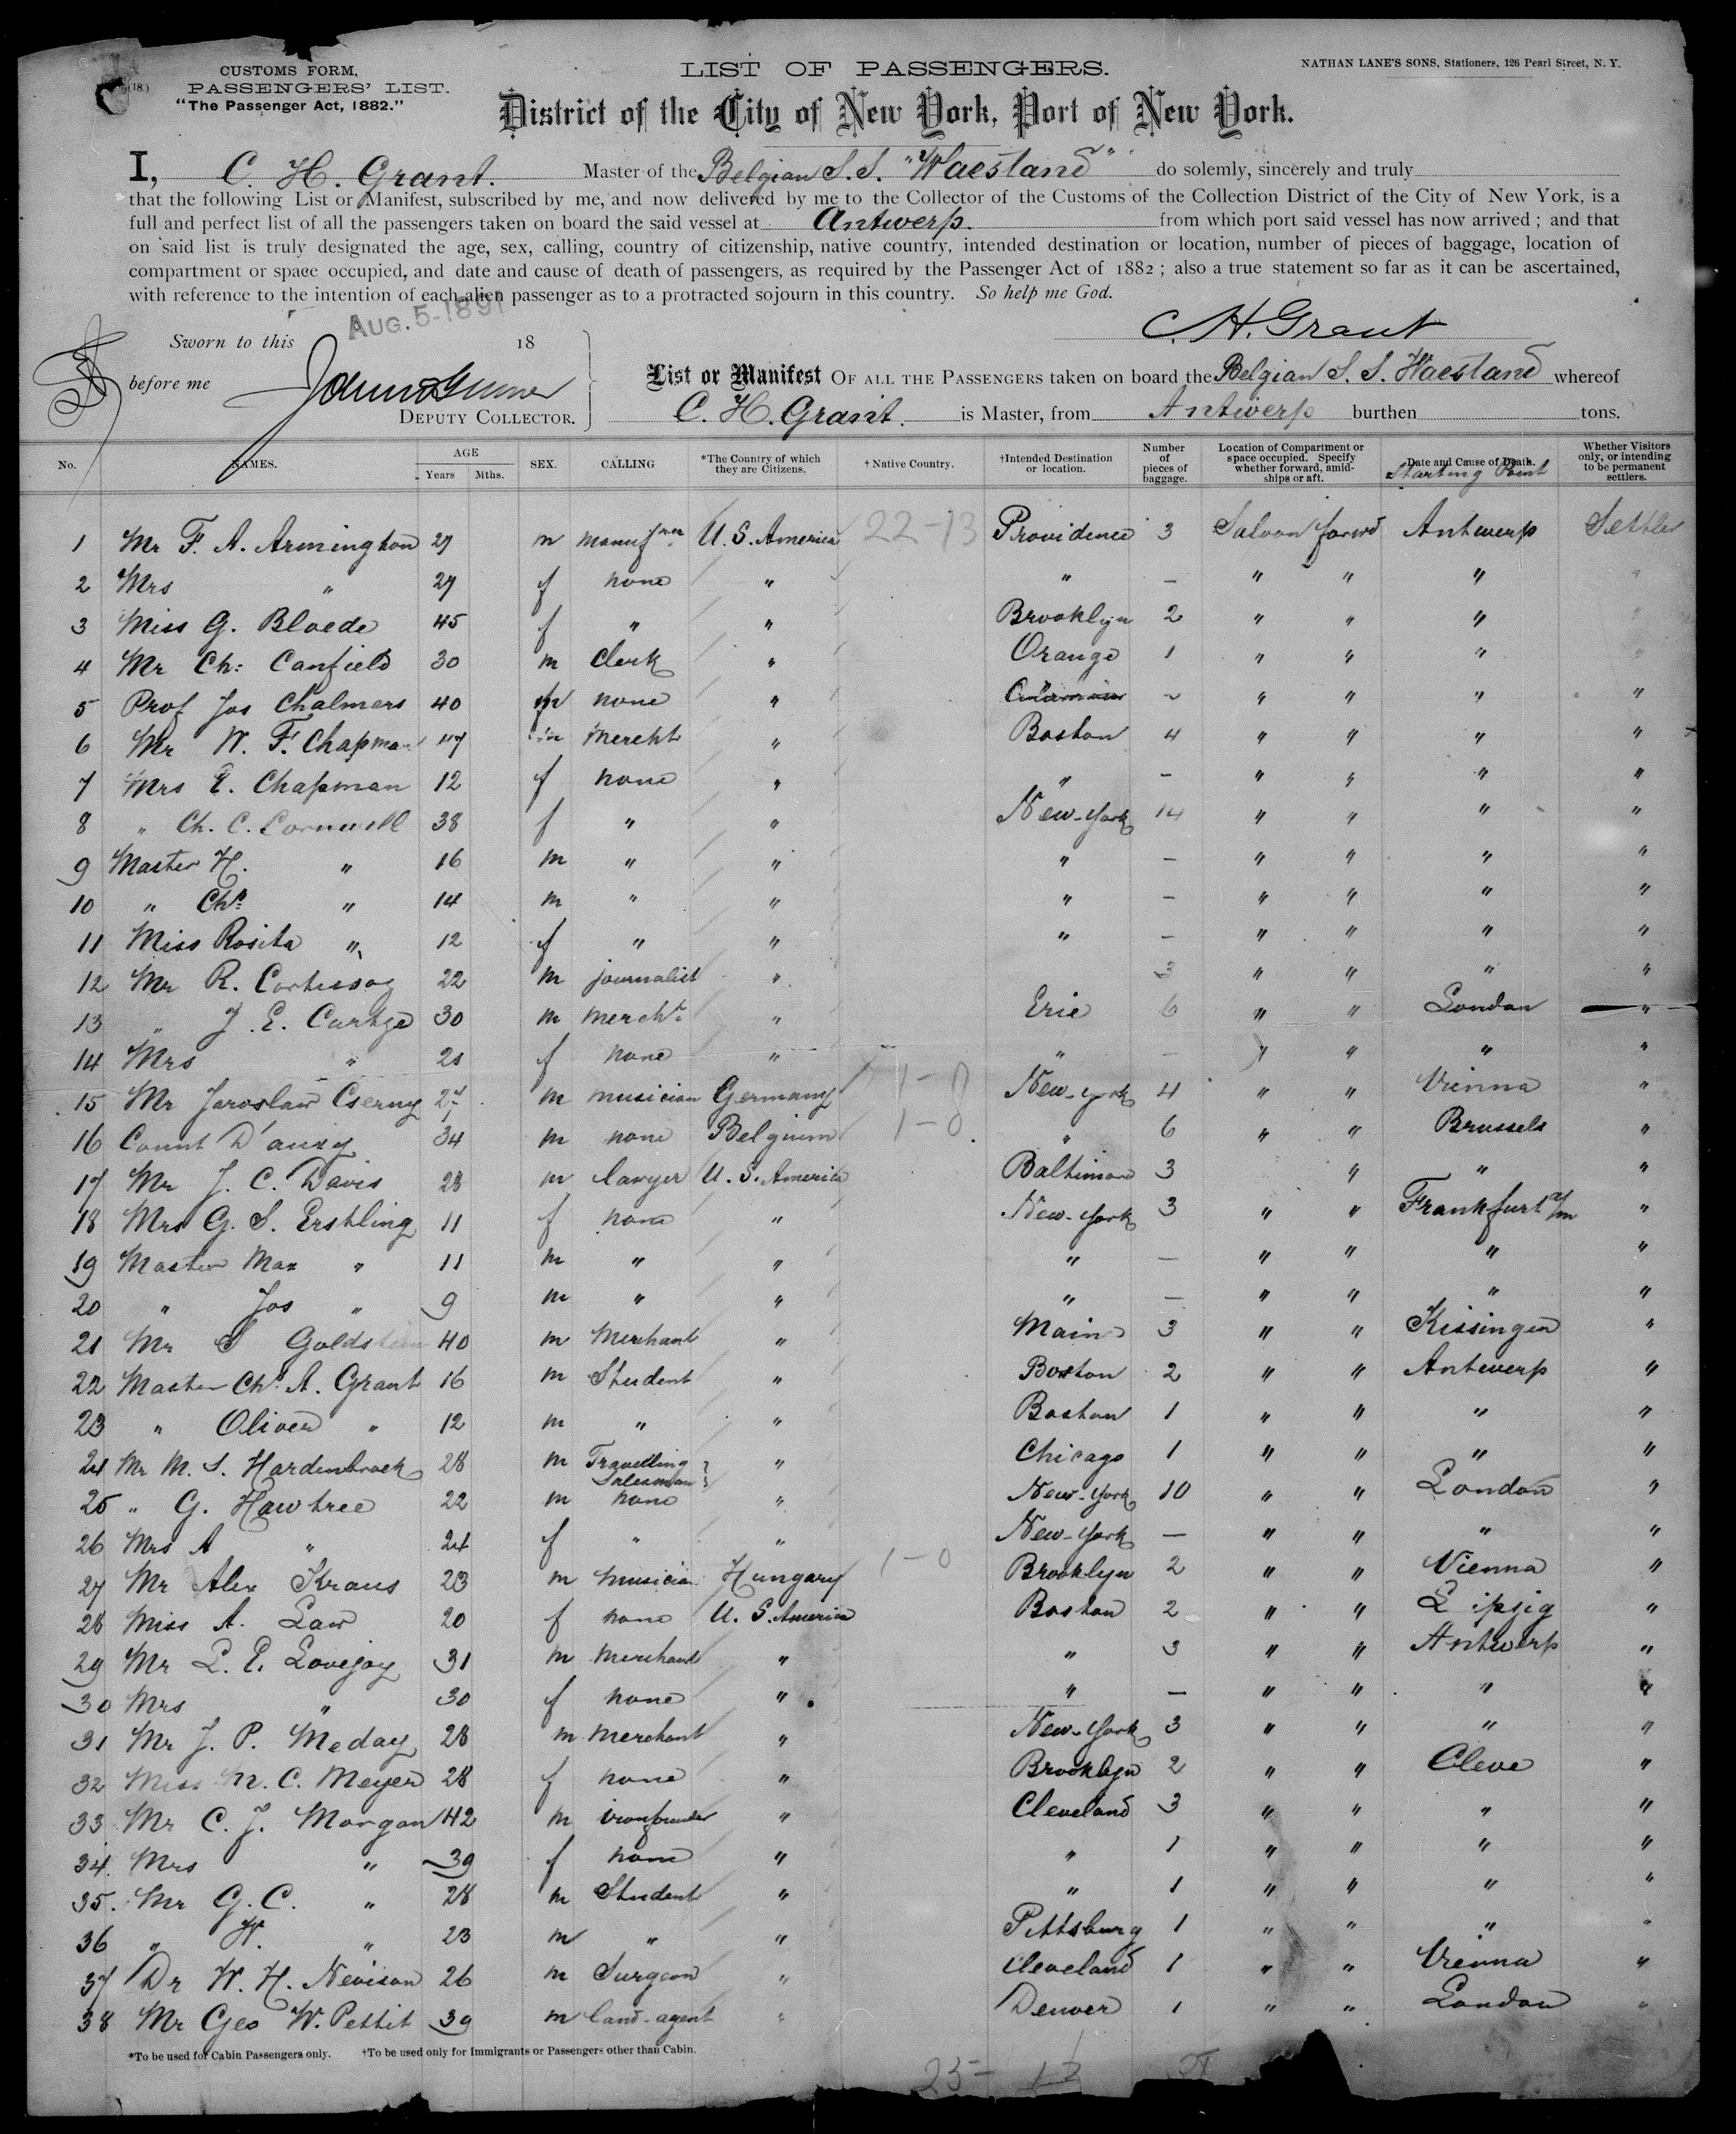 (18.)
CUSTOMS FORM,
PASSENGERS' LIST.
"The Passenger Act, 1882."
LIST OF PASSENGERS.
NATHAN LANE'S SONS, Stationers, 126 Pearl Street, N. Y.
District of the City of New York, Port of New York.
I, C. H. Grant. Master of the Belgian S. S. "Waesland" do solemnly, sincerely and truly
that the following List or Manifest, subscribed by me, and now delivered by me to the Collector of the Customs of the Collection District of the City of New York, is a
full and perfect list of all the passengers taken on board the said vessel at Antwerp. from which port said vessel has now arrived ; and that
on said list is truly designated the age, sex, calling, country of citizenship, native country, intended destination or location, number of pieces of baggage, location of
compartment or space occupied, and date and cause of death of passengers, as required by the Passenger Act of 1882 ; also a true statement so far as it can be ascertained,
with reference to the intention of each alien passenger as to a protracted sojourn in this country. So help me God.
AUG. 5-1891
C. H. Grant
Sworn to this 18
before me
DEPUTY COLLECTOR.
List or Manifest OF ALL THE PASSENGERS taken on board the Belgian S. S. Waesland whereof
C. H. Grant. is Master, from Antwerp burthen tons.
No. NAMES. AGE Years Mths. SEX. CALLING *The Country of which they are Citizens. † Native Country. †Intended Destination or location. Number of pieces of baggage. Location of Compartment or space occupied. Specify whether forward, amidships or aft. Date and Cause of Death. Starting Point Whether Visitors only, or intending to be permanent settlers.
1 Mr F. A. Armington 27 m manufrer U. S. America 22-13 Providence 3 Saloon forwd Antwerp Settler
2 Mrs " 27 f none " " — " " " "
3 Miss G. Bloede 45 f " " Brooklyn 2 " " " "
4 Mr Ch: Canfield 30 m Clerk " Orange 1 " " " "
5 Prof Jos Chalmers 40 m none " ~ " " " "
6 Mr W. F. Chapman 47 m Mercht " Boston 4 " " " "
7 Mrs E. Chapman 12 f none " " – " " " "
8 " Ch. C. Cornwell 38 f " " New-York 14 " " " "
9 Master H. " 16 m " " " — " " " "
10 " Chs " 14 m " " " – " " " "
11 Miss Rosita " 12 f " " " – " " " "
12 Mr R. Cortissoz 22 m journalist " 3 " " " "
13 " J. E. Curtze 30 m mercht. " Erie 6 " " London "
14 Mrs " 21 f none " " – " " " "
15 Mr Jaroslaw Cserny 27 m musician Germany 1-8 New-York 4 " " Vienna "
16 Count D'auxy 34 m none Belgium 1-0 " 6 " " Brussels "
17 Mr J. C. Davis 28 m lawyer U. S. America Baltimore 3 " " "
18 Mrs G. S. Erstling 11 f none " New-York 3 " " Frankfurt a/m "
19 Master Max " 11 m " " " — " " " "
20 " Jos " 9 m " " " — " " " "
21 Mr S Goldstein 40 m Merchant " Main 3 " " Kissingen "
22 Master Chs A. Grant 16 m Student " Boston 2 " " Antwerp "
23 " Oliver " 12 m " " Boston 1 " " " "
24 Mr M. S. Hardenbrock 28 m Travelling Salesman " Chicago 1 " " " "
25 " G. Hawtree 22 m none " New-York 10 " " London "
26 Mrs A " 24 f " " New-York — " " " "
27 Mr Alex Kraus 23 m musician Hungary 1-0 Brooklyn 2 " " Vienna "
28 Miss A. Law 20 f none U. S. America Boston 2 " " Leipzig "
29 Mr L. E. Lovejoy 31 m Merchant " " 3 " " Antwerp "
30 Mrs " 30 f none " " — " " " "
31 Mr J. P. Meday 28 m Merchant " New-York 3 " " " "
32 Miss M. C. Meyer 28 f none " Brooklyn 2 " " Cleve "
33 Mr C. J. Morgan 42 m ironfounder " Cleveland 3 " " " "
34. Mrs " 39 f none " " 1 " " " "
35. Mr G. C. " 28 m Student " " 1 " " " "
36 " W. " 23 m " " Pittsburg 1 " " " "
37 Dr W. H. Nevison 26 m Surgeon " Cleveland 1 " " Vienna "
38 Mr Geo W. Pettit 39 m land-agent " Denver 1 " " London "
*To be used for Cabin Passengers only. †To be used only for Immigrants or Passengers other than Cabin.
25- 13